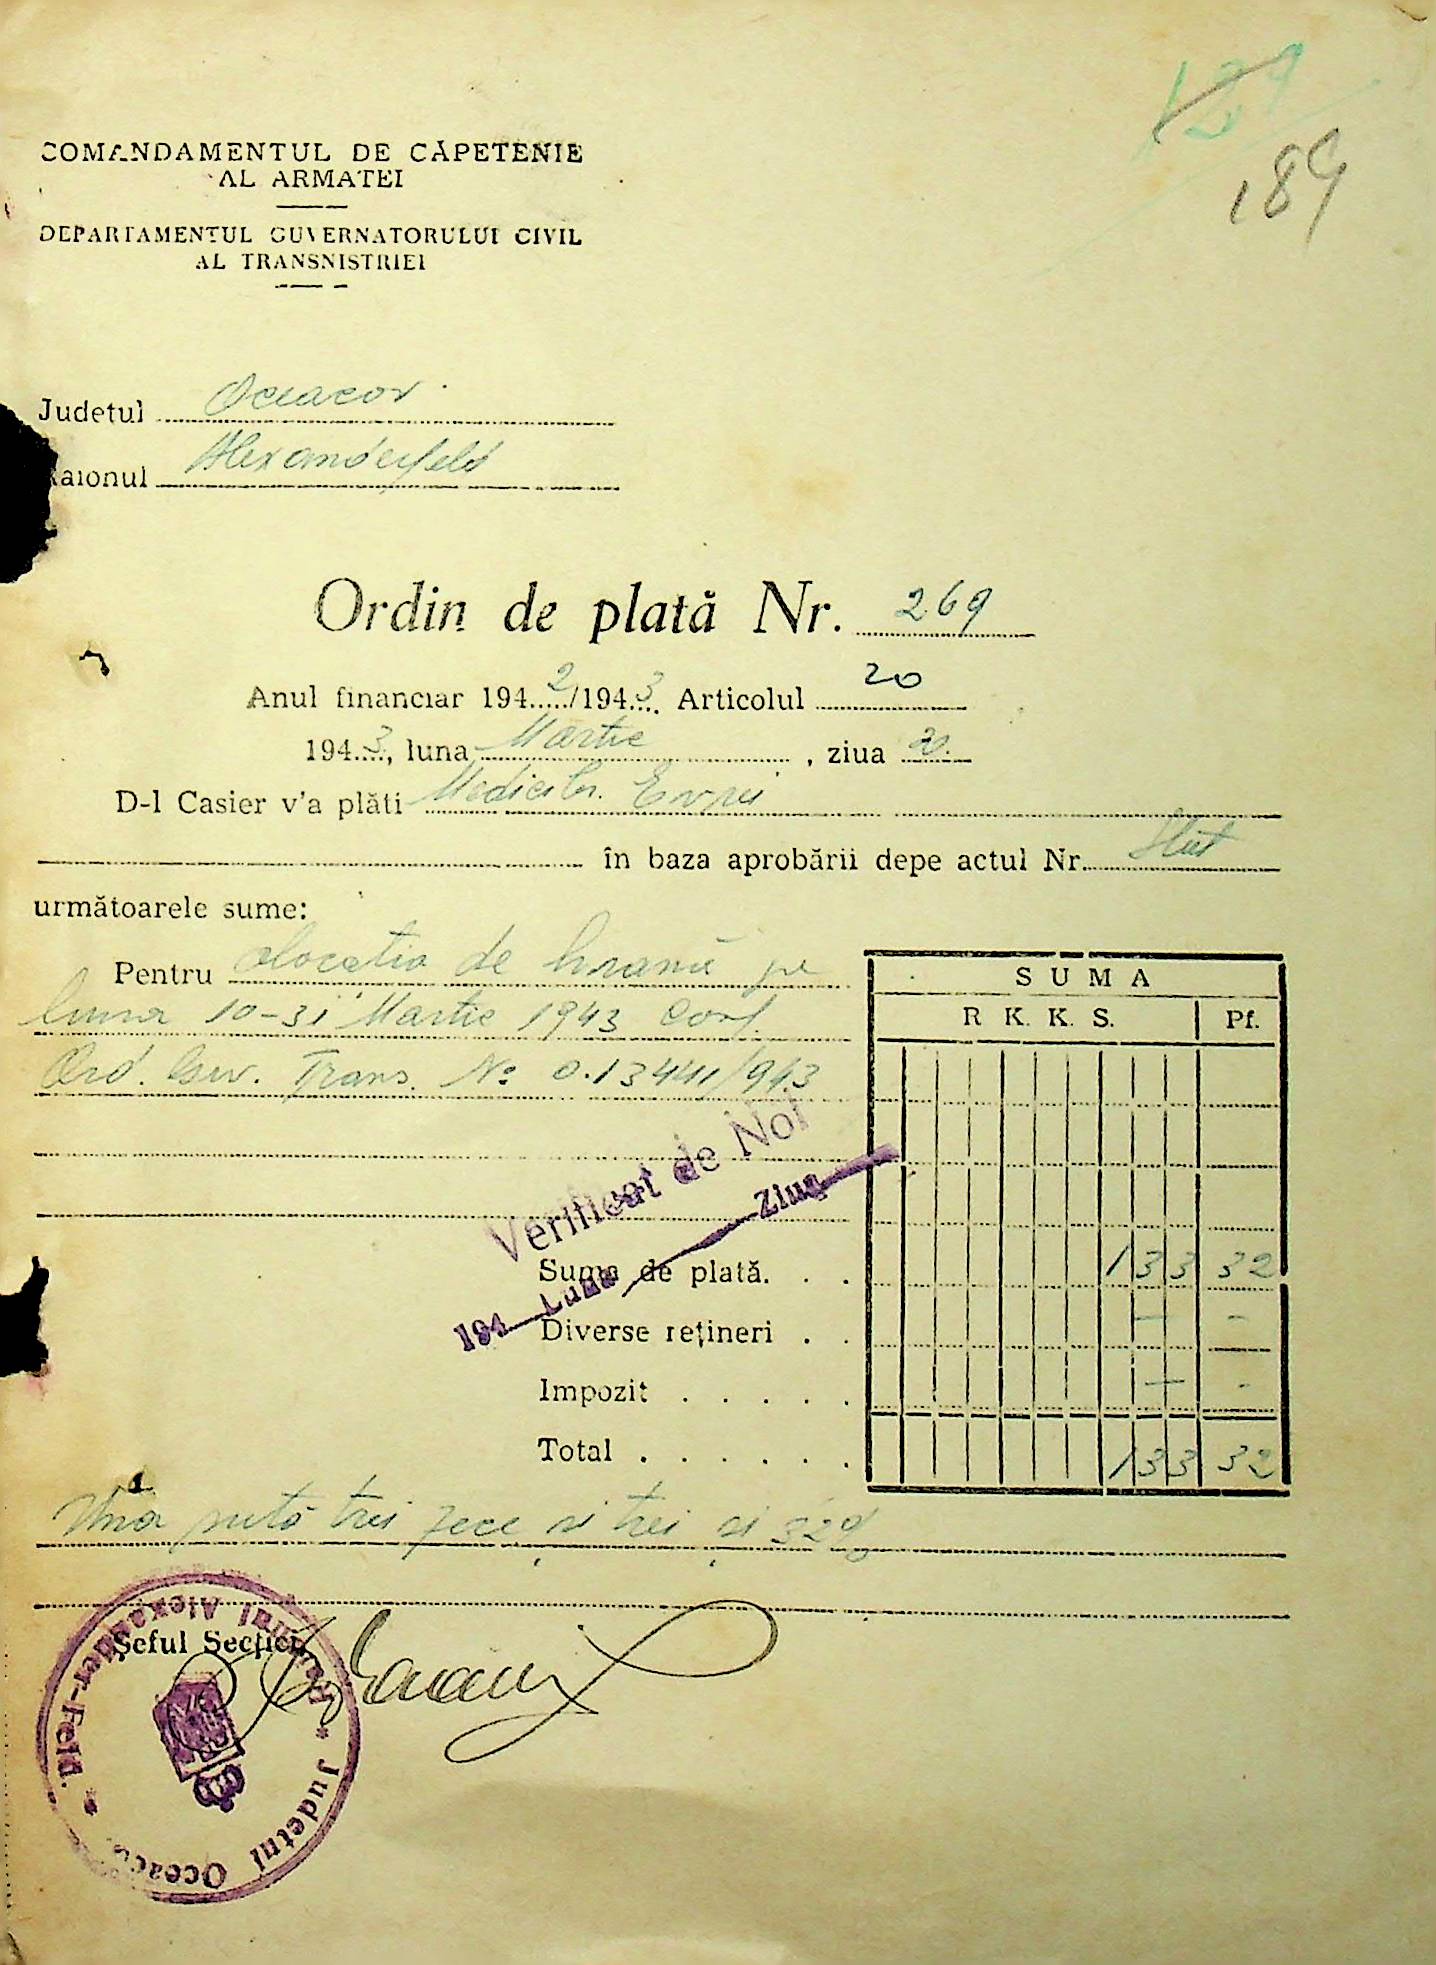 189
COMANDAMENTUL DE CĂPETENIE
AL ARMATEI
DEPARTAMENTUL GUVERNATORULUI CIVIL
AL TRANSNISTRIEI
Judetul Oceacov
Raionul Alexanderfeld
Ordin de plată Nr. 269
Anul financiar 1942/1943 Articolul 20
1943, luna Martie, ziua 20.
D-l Casier v'a plăti Medicilor Evrei
în baza aprobării depe actul Nr. Stat
următoarele sume:
Pentru alocatia de hrană pe
luna 10-31 Martie 1943 conf.
Ord. Guv. Trans. No 0.13441/943
SUMA
R K. K. S. Pf.
Verificat de Noi
194 Luna Ziua
Suma de plată. . . 133 32
Diverse rețineri . . — -
Impozit . . . . . — -
Total . . . . . . 133 32
Una sută trei zece si trei si 32
Șeful Secției
Raionul Alexander-Feld. * Judetul Oceacov *